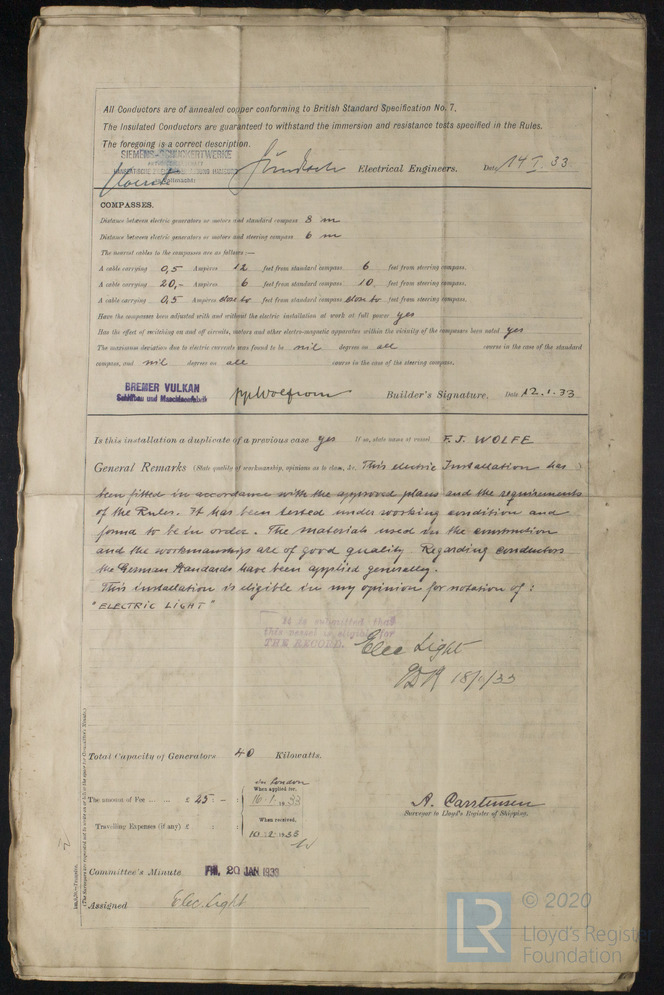 All Conductors are of annealed copper conforming to British Standard Specification No. 7.
The Insulated Conductors are guaranteed to withstand the immersion and resistance tests specified in the Rules.
The foregoing is a correct description.
SIEMENS-SCHUCKERTWERKE
Electrical Engineers. Date 14 I. 33
COMPASSES.
Distance between electric generators or motors and standard compass 8 m
Distance between electric generators or motors and steering compass 6 m
The nearest cables to the compasses are as follows :—
A cable carrying 0,5 Amperes 12 feet from standard compass 6 feet from steering compass.
A cable carrying 20,- Amperes 6 feet from standard compass 10 feet from steering compass.
A cable carrying 0,5 Amperes close to feet from standard compass close to feet from steering compass.
Have the compasses been adjusted with and without the electric installation at work at full power yes
Has the effect of switching on and off circuits, motors and other electro-magnetic apparatus within the vicinity of the compasses been noted yes
The maximum deviation due to electric currents was found to be nil degrees on all course in the case of the standard
compass, and nil degrees on all course in the case of the steering compass.
BREMER VULKAN
Schiffbau und Maschinenfabrik
ppWolfrom Builder's Signature. Date 12.1.33
Is this installation a duplicate of a previous case yes If so, state name of vessel F. J. WOLFE
General Remarks (State quality of workmanship, opinions as to class, &c. This electric Installation has )
been fitted in accordance with the approved plans and the requirements
of the Rules. It has been tested under working condition and
found to be in order. The materials used in the construction
and the workmanship are of good quality. Regarding conductors
the German Standards have been applied generally.
This installation is eligible in my opinion for notation of :
"ELECTRIC LIGHT"
It is submitted that
this vessel is eligible for
THE RECORD. Elec Light
18/1/33
Total Capacity of Generators 40 Kilowatts.
in London
The amount of Fee ... ... £ 25 : - : When applied for, 16.1.1933
Travelling Expenses (if any) £ : : When received, 10.2.1933
A. Carstensen
Surveyor to Lloyd's Register of Shipping.
Committee's Minute FRI. 20 JAN 1933
Assigned Elec. Light
LR
© 2020
Lloyd's Register
Foundation